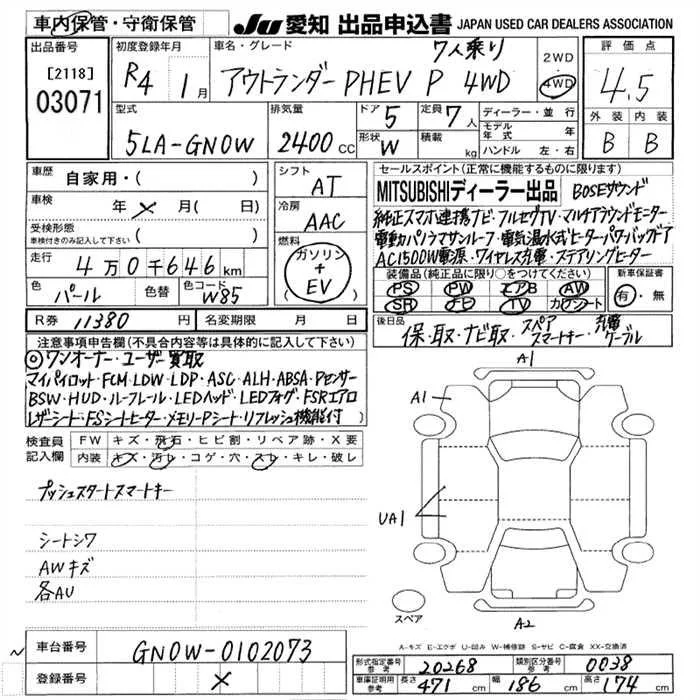 車内保管・守衛保管
JU 愛知 出品申込書 JAPAN USED CAR DEALERS ASSOCIATION
出品番号
[2118]
03071
初度登録年月
R4 1月
車名・グレード
7人乗り
アウトランダーPHEV P 4WD
2WD
4WD
評価点
4.5
型式
5LA-GN0W
排気量
2400cc
ドア 5
形状 W
定員 7人
積載 kg
ディーラー・並行
モデル年式 年
ハンドル 左・右
外装 内装
B B
車歴 自家用・( )
車検 年 × 月( 日)
受検形態
車検付きのみ記入して下さい ( )
走行 4万0千646km
色 パール 色替 色コード W85
シフト
AT
冷房
AAC
燃料
ガソリン
+
EV
セールスポイント(正常に機能するものに限ります)
MITSUBISHIディーラー出品 BOSEサウンド
純正スマホ連携ナビ・フルセグTV・マルチアラウンドモニター
電動パノラマサンルーフ・電気温水式ヒーター・パワーバックドア
AC1500W電源・ワイヤレス充電・ステアリングヒーター
装備品(純正品に限り○をつけてください)
PS PW エアB AW
SR ナビ TV カワシート
新車保証書
有・無
R券 11380円 名変期限 月 日
後日品
保・取・ナビ取・スペアスマートキー・充電ケーブル
注意事項申告欄(不具合内容等は具体的に記入して下さい)
◎ワンオーナー・ユーザー買取
マイパイロット・FCM・LDW・LDP・ASC・ALH・ABSA・Pセンサー
BSW・HUD・ルーフレール・LEDヘッド・LEDフォグ・FSRエアロ
レザーシート・FSシートヒーター・メモリーPシート・リフレッシュ機能付
検査員記入欄
FW キズ・飛石・ヒビ割・リペア跡・X要
内装 キズ・汚レ・コゲ・穴・スレ・キレ・破レ
プッシュスタートスマートキー
シートシワ
AWキズ
各AU
A1
A1
UA1
スペア
A2
A-キズ E-エクボ U-凹み W-補修跡 S-サビ C-腐食 XX-交換済
車台番号 GN0W-0102073
登録番号 ×
形式指定番号 参考 20268 類別区分番号 参考 0038
車庫証明用 参考 長さ 471cm 幅 186cm 高さ 174cm